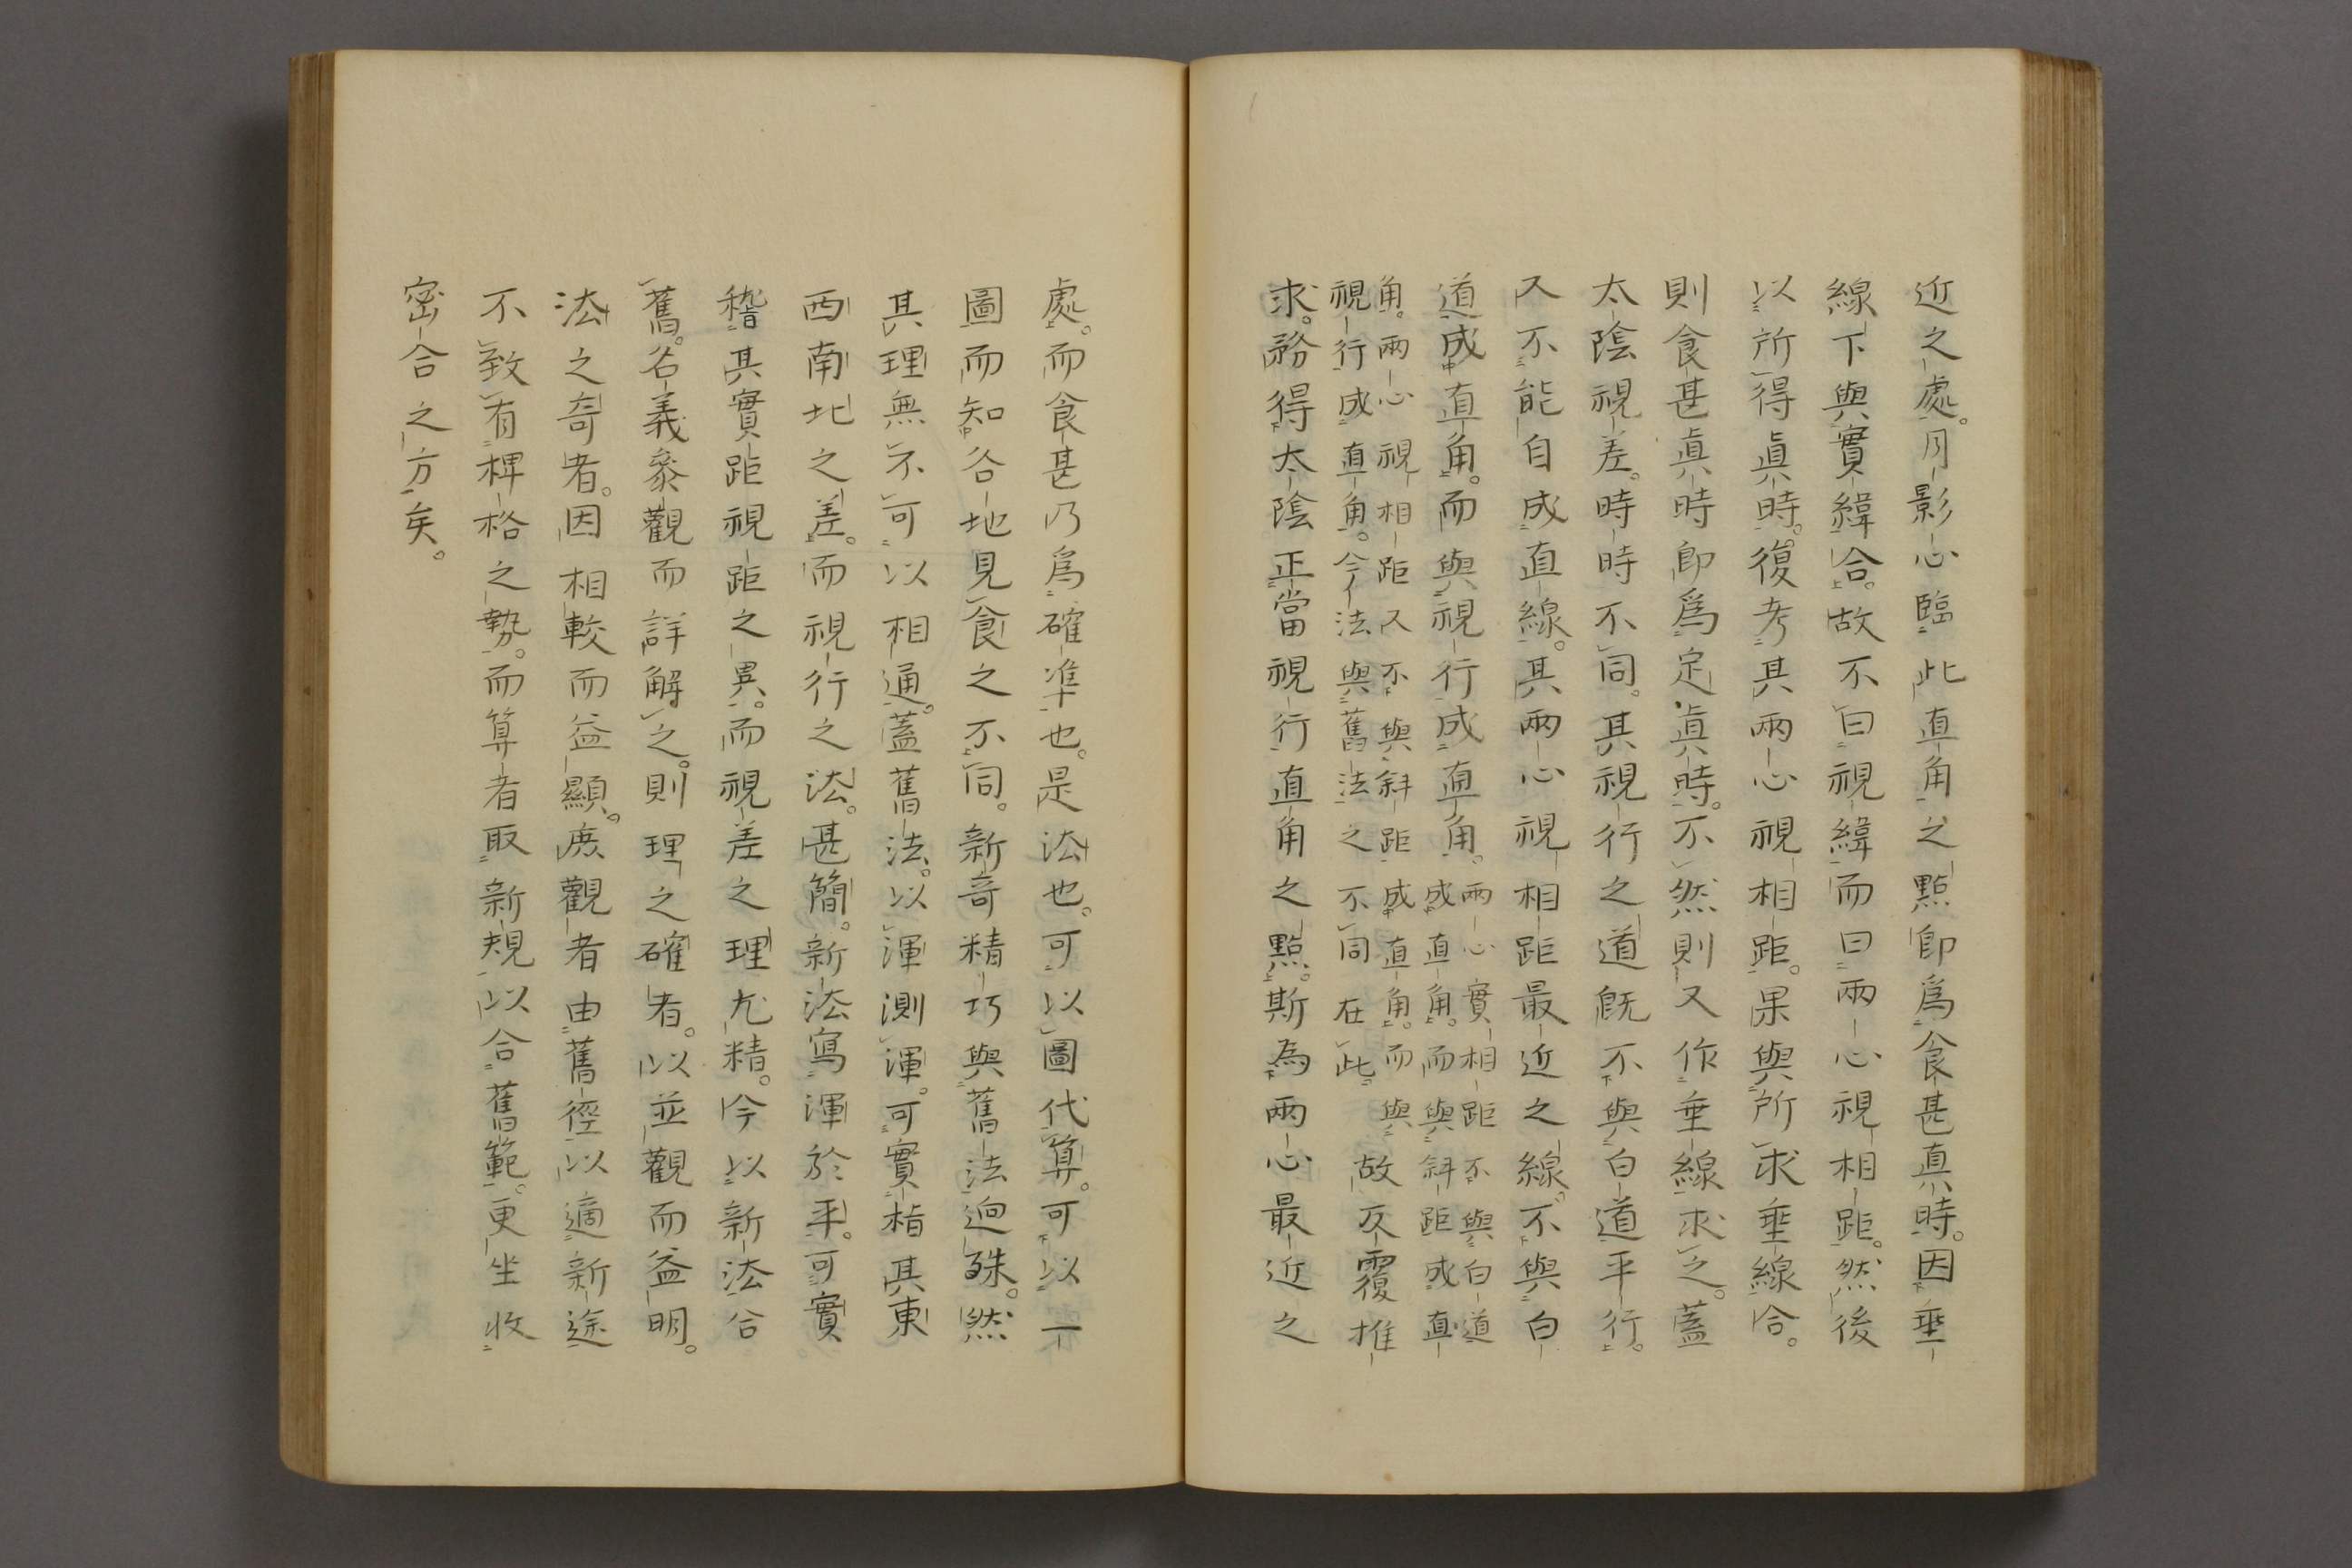 近之處。月影心臨此直角之點卽爲食甚真時。因垂
線下與實緯合。故不曰視緯而曰兩心視相距。然後
以所得眞時。復考其兩心視相距。果與所求垂線合。
則食甚眞時卽爲定眞時。不然則又作垂線求之。蓋
太陰視差。時時不同。其視行之道旣不與白道平行。
又不能自成直線。其兩心視相距最近之線。不與白
道成直角。而與視行成直角。
兩心實相距不與白道
成直角。而與斜距成直
角。兩心視相距又不與斜距成直角。而與
視行成直角。今法與舊法之不同在此
故反覆推
求。務得太陰正當視行直角之點。斯為兩心最近之
處。而食甚乃爲確準也。是法也。可以圖代算。可以一
圖而知各地見食之不同。新奇精巧與舊法逈殊。然
其理無不可以相通。蓋舊法。以渾測渾。可實指其東
西南北之差。而視行之法。甚簡。新法寫渾於平。可實
稽其實距視距之異。而視差之理尤精。今以新法合
舊。名義參觀而詳解之。則理之確者。以並觀而益明。
法之奇者。因相較而益顯。庶觀者由舊徑以適新途
不致有桿格之勢。而算者取新規以合舊範。更坐收
密合之方矣。